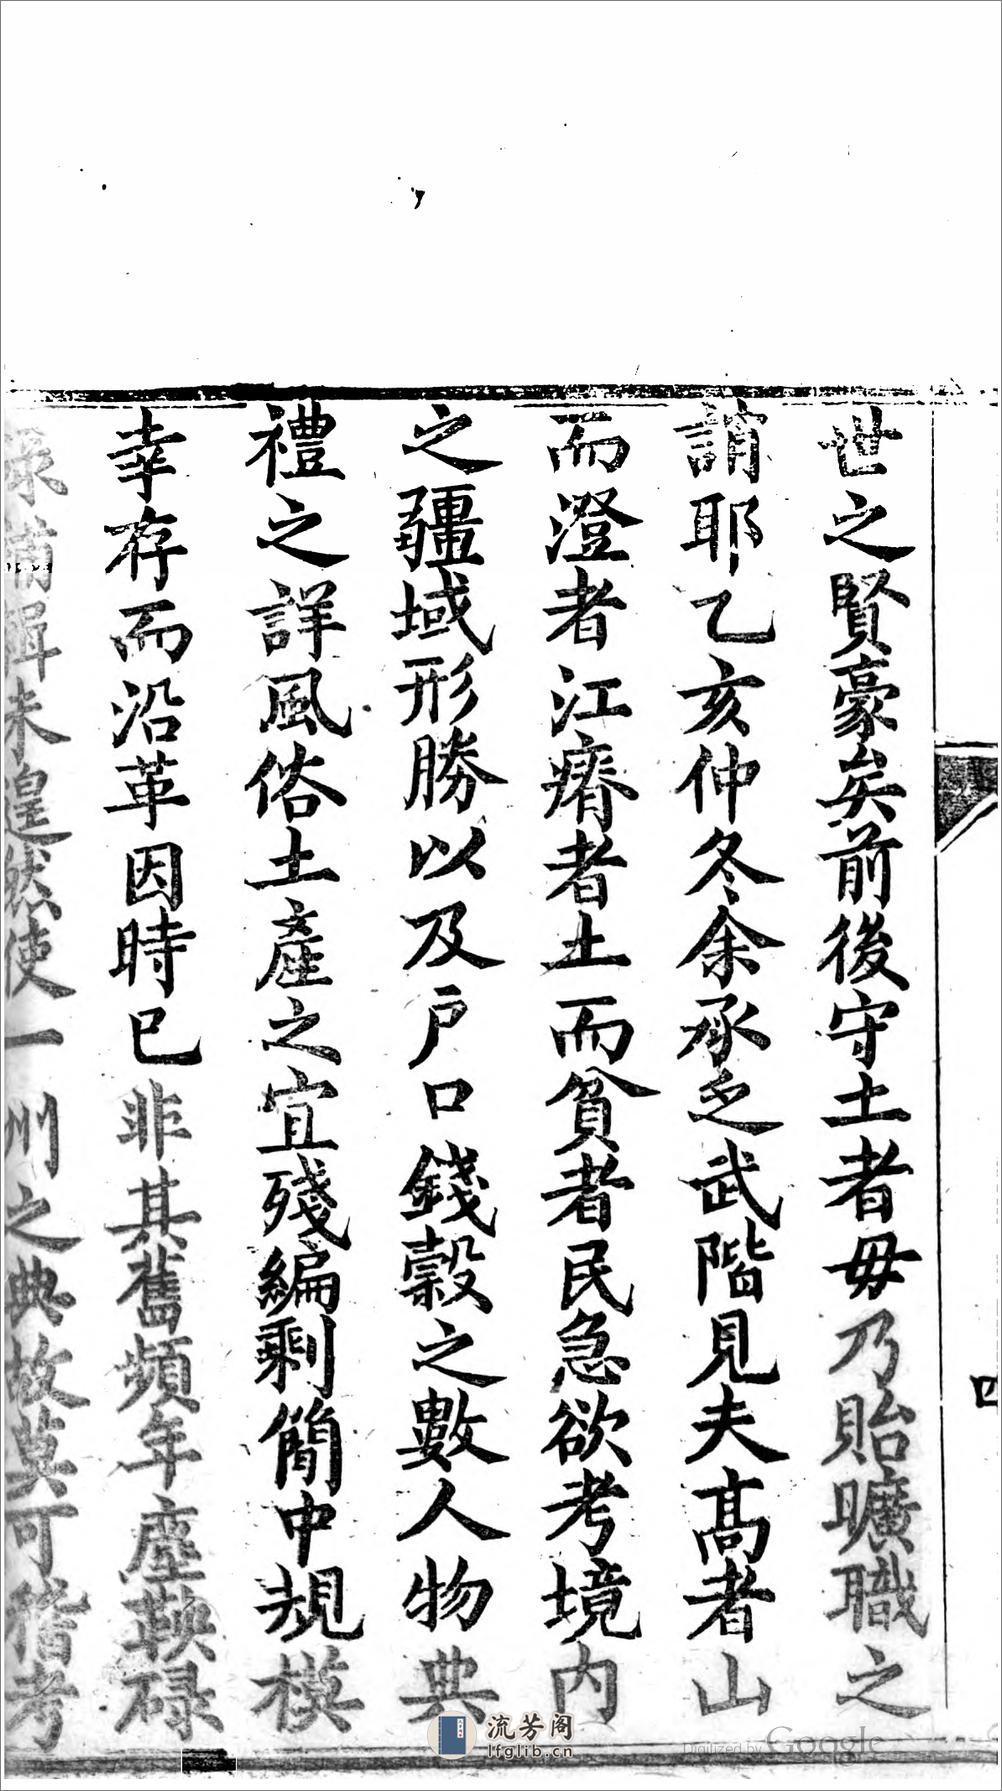 世之賢豪矣前後守土者毋乃貽曠職之
誚耶乙亥仲冬余承乏武階見夫髙者山
而澄者江瘠者土而貧者民急欲考境内
之疆域形勝以及户口錢穀之數人物典
禮之詳風俗土產之宜殘編剩簡中規模
幸存而沿革因時已非其舊頻年塵鞅碌
碌補輯未遑然使一州之典故莫可稽考
四
流芳阁
lfglib.cn
Digitized by Google